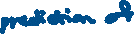 prediction of